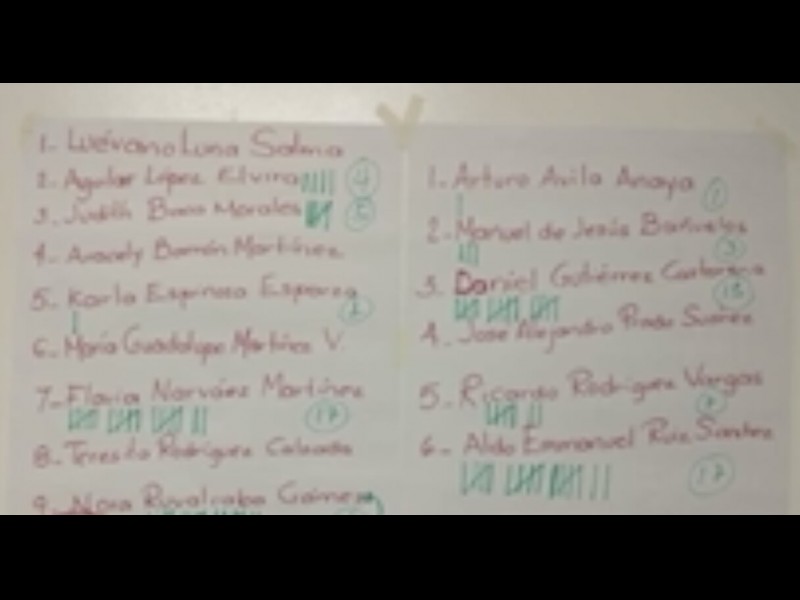 1- Luévano Luna Salma
2- Aguilar López Elvira 4
3- Judith Bravo Morales 5
4- Aracely Barrón Martínez
5- Karla Espinoza Esparza
6- María Guadalupe Martínez V.
7- Flavia Narváez Martínez
17
8- Teresita Rodríguez Calzada
9- Nora Ruvalcaba Gámez
1- Arturo Avila Anaya
1
2- Manuel de Jesús Bañuelos
3
3- Daniel Gutiérrez
15
4- José Alejandro Prado Suárez
5- Ricardo Rodríguez Vargas
7
6- Aldo Emmanuel Ruiz Sánchez
17